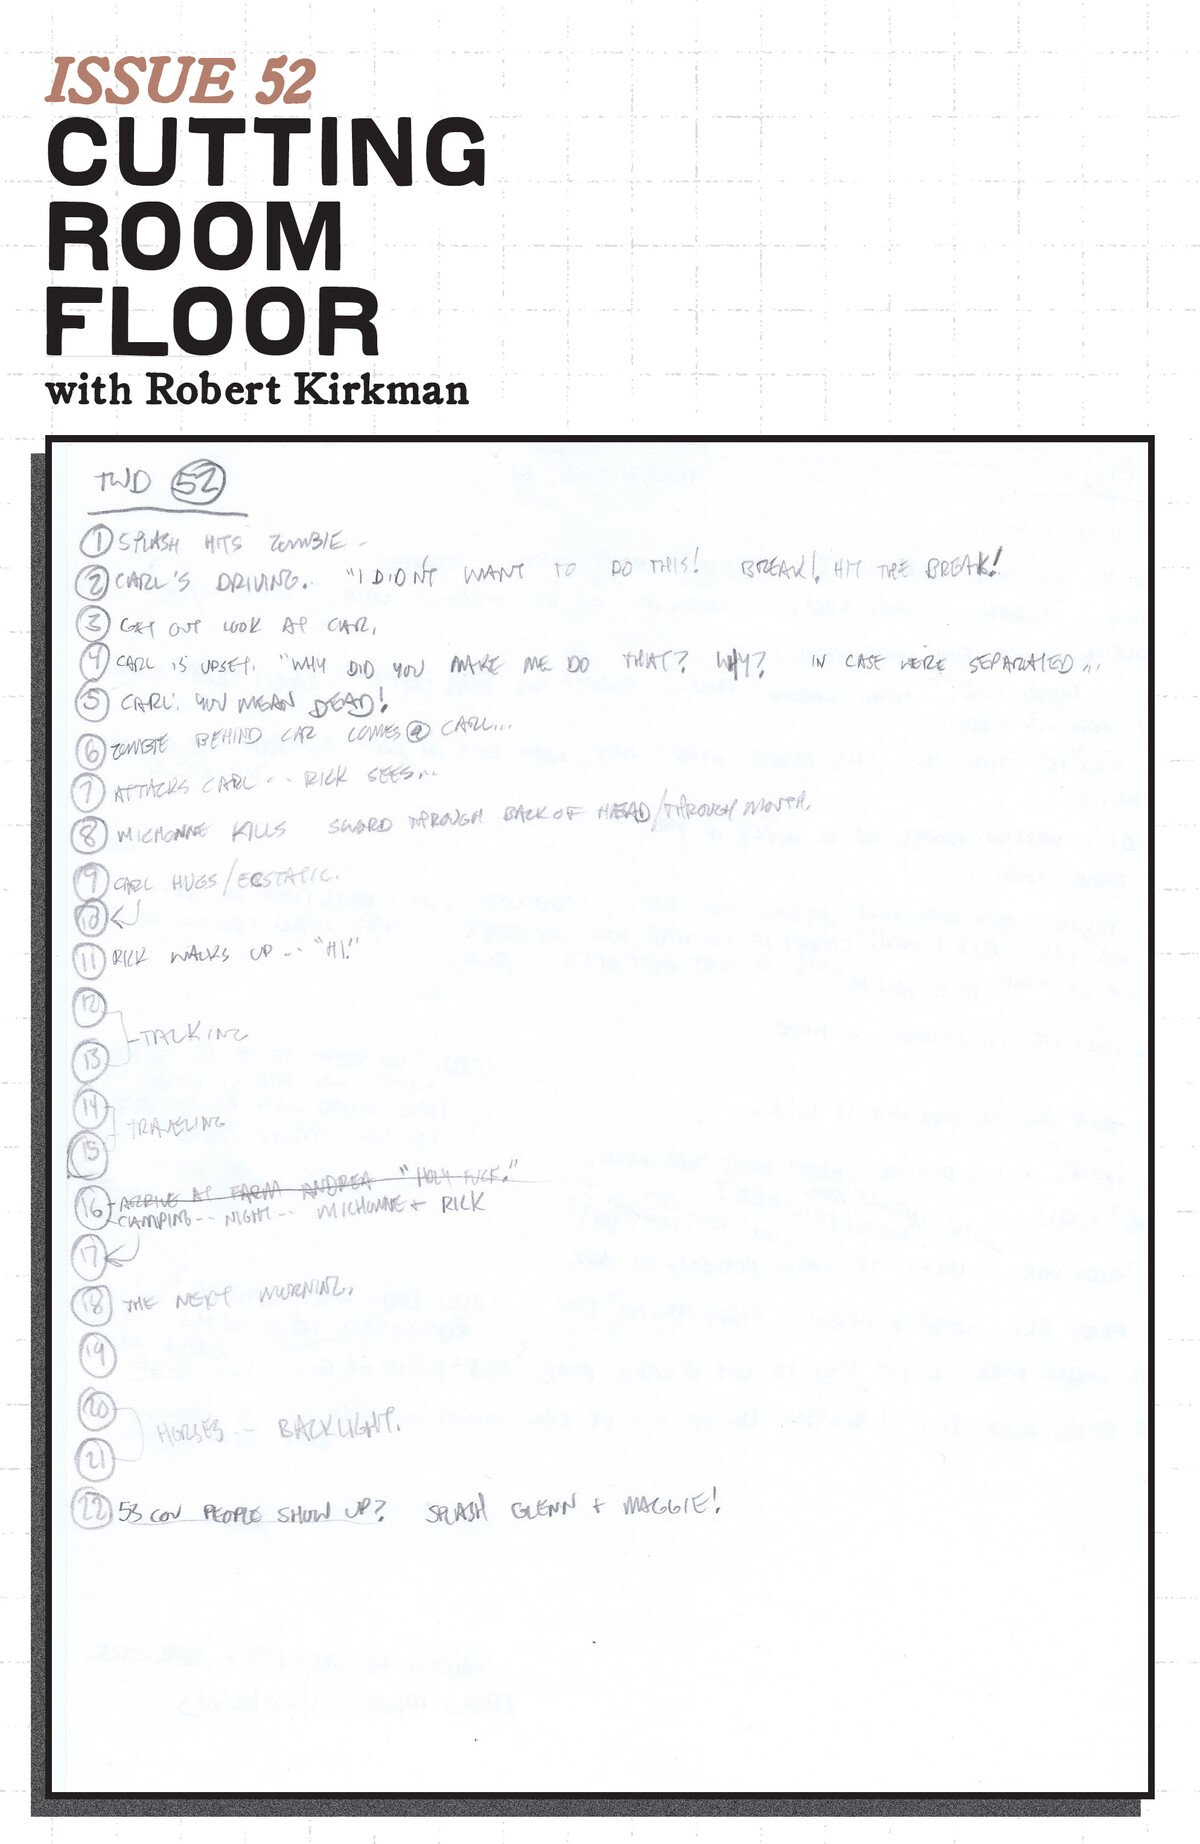 ISSUE 52
CUTTING
ROOM
FLOOR
with Robert Kirkman
TWD 52
1 SPLASH HITS ZOMBIE -
2 CARL'S DRIVING.. "I DIDNT WANT TO DO THIS! BREAK!, HIT THE BREAK!
3 GET OUT LOOK AT CAR.
4 CARL IS UPSET. "WHY DID YOU MAKE ME DO THAT? WHY? IN CASE WERE SEPARATED...
5 CARL: YOU MEAN DEAD!
6 ZOMBIE BEHIND CAR COMES @ CARL...
7 ATTACKS CARL -- RICK SEES...
8 MICHONNE KILLS SWORD THROUGH BACK OF HEAD/THROUGH MOUTH.
9 CARL HUGS/ECSTATIC.
10
11 RICK WALKS UP -- "HI!"
12
-TALKING
13
14
TRAVELING
15
16 -ARRIVE AT FARM ANDREA "HOLY FUCK."
-CAMPING -- NIGHT -- MICHONNE + RICK
17
18 THE NEXT MORNING.
19
20
HORSES -- BACKLIGHT.
21
22 53 COV PEOPLE SHOW UP? SPLASH GLENN + MAGGIE!